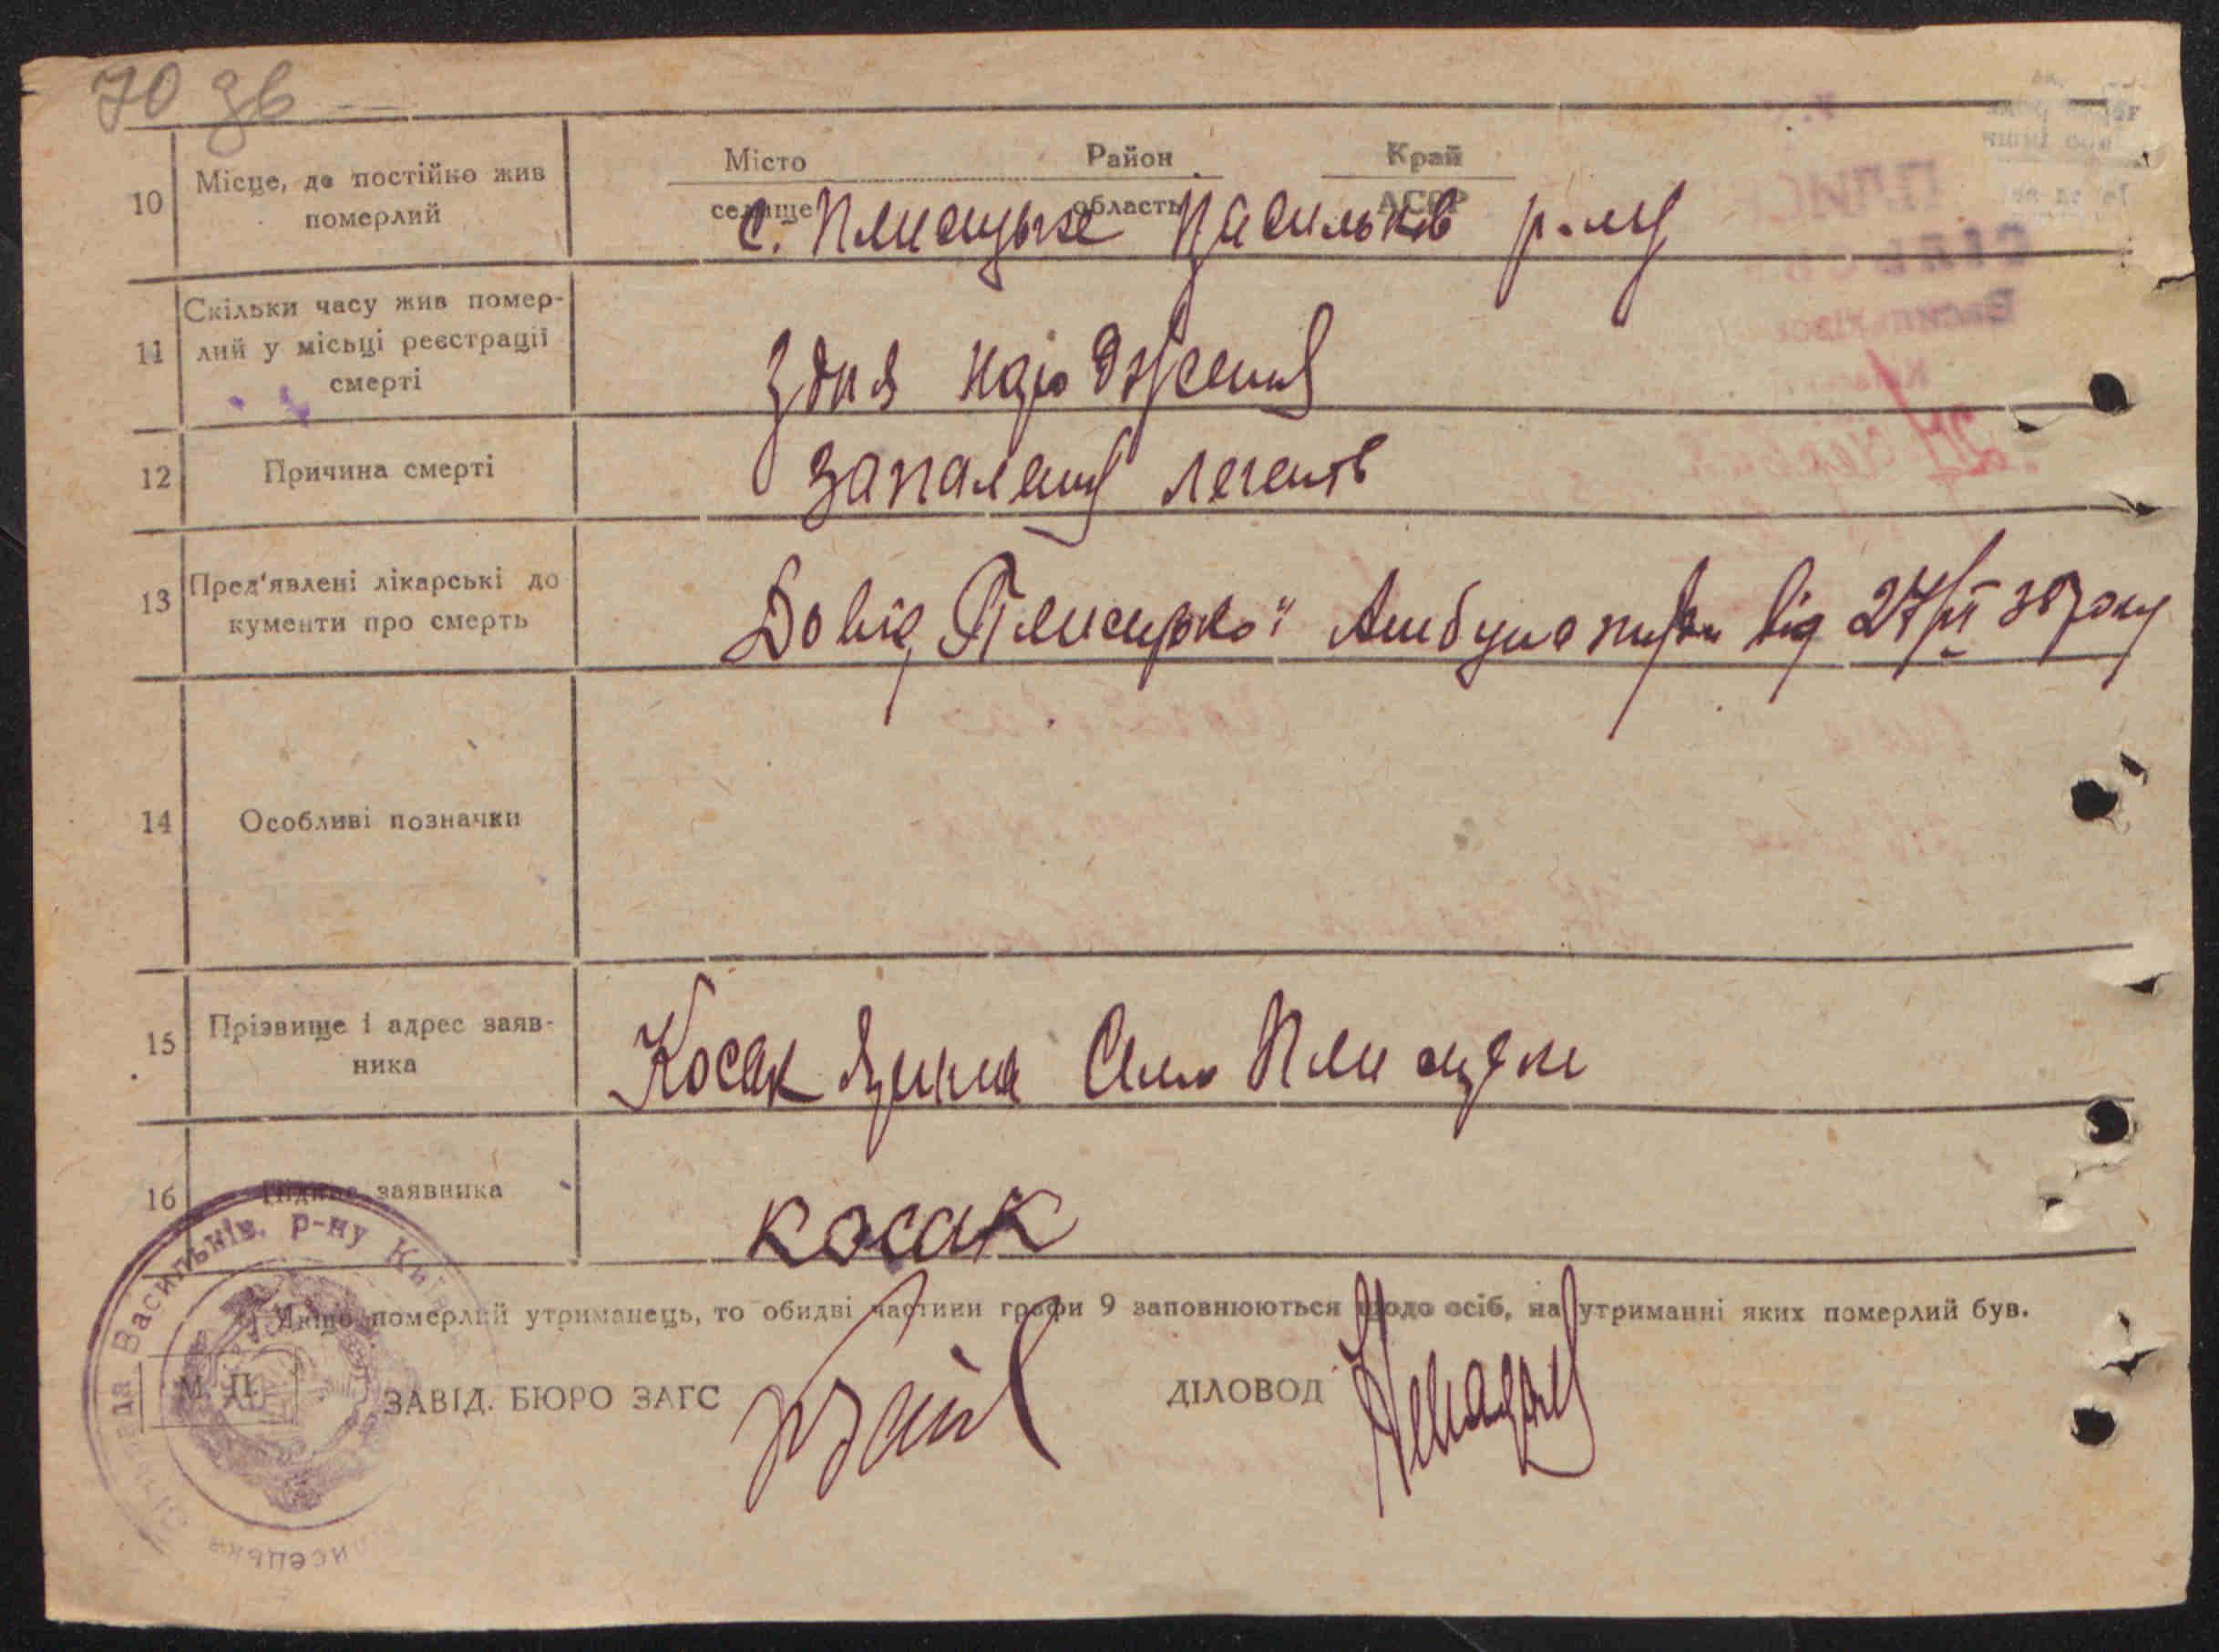 70 зв
10 Місце, де постійно жив померлий
Місто Район Край
селище область АСРР
с. Плисецьке Васильків р-ну
11 Скільки часу жив помер-
лий у місьці реєстрації
смерті
З дня народження
12 Причина смерті
запалення легенів
13 Пред'явлені лікарські до
кументи про смерть
Довід Плисецької Амбулаторії від 27/VI 38 року
14 Особливі позначки
15 Прізвище і адрес заяв-
ника
Косак Село Плисецьке
16 Підпис заявника
косак
Якщо померлий утриманець, то обидві частини графи 9 заповнюються щодо осіб, на утриманні яких померлий був.
М. П.
ЗАВІД. БЮРО ЗАГС
ДІЛОВОД
Васильків. р-ну